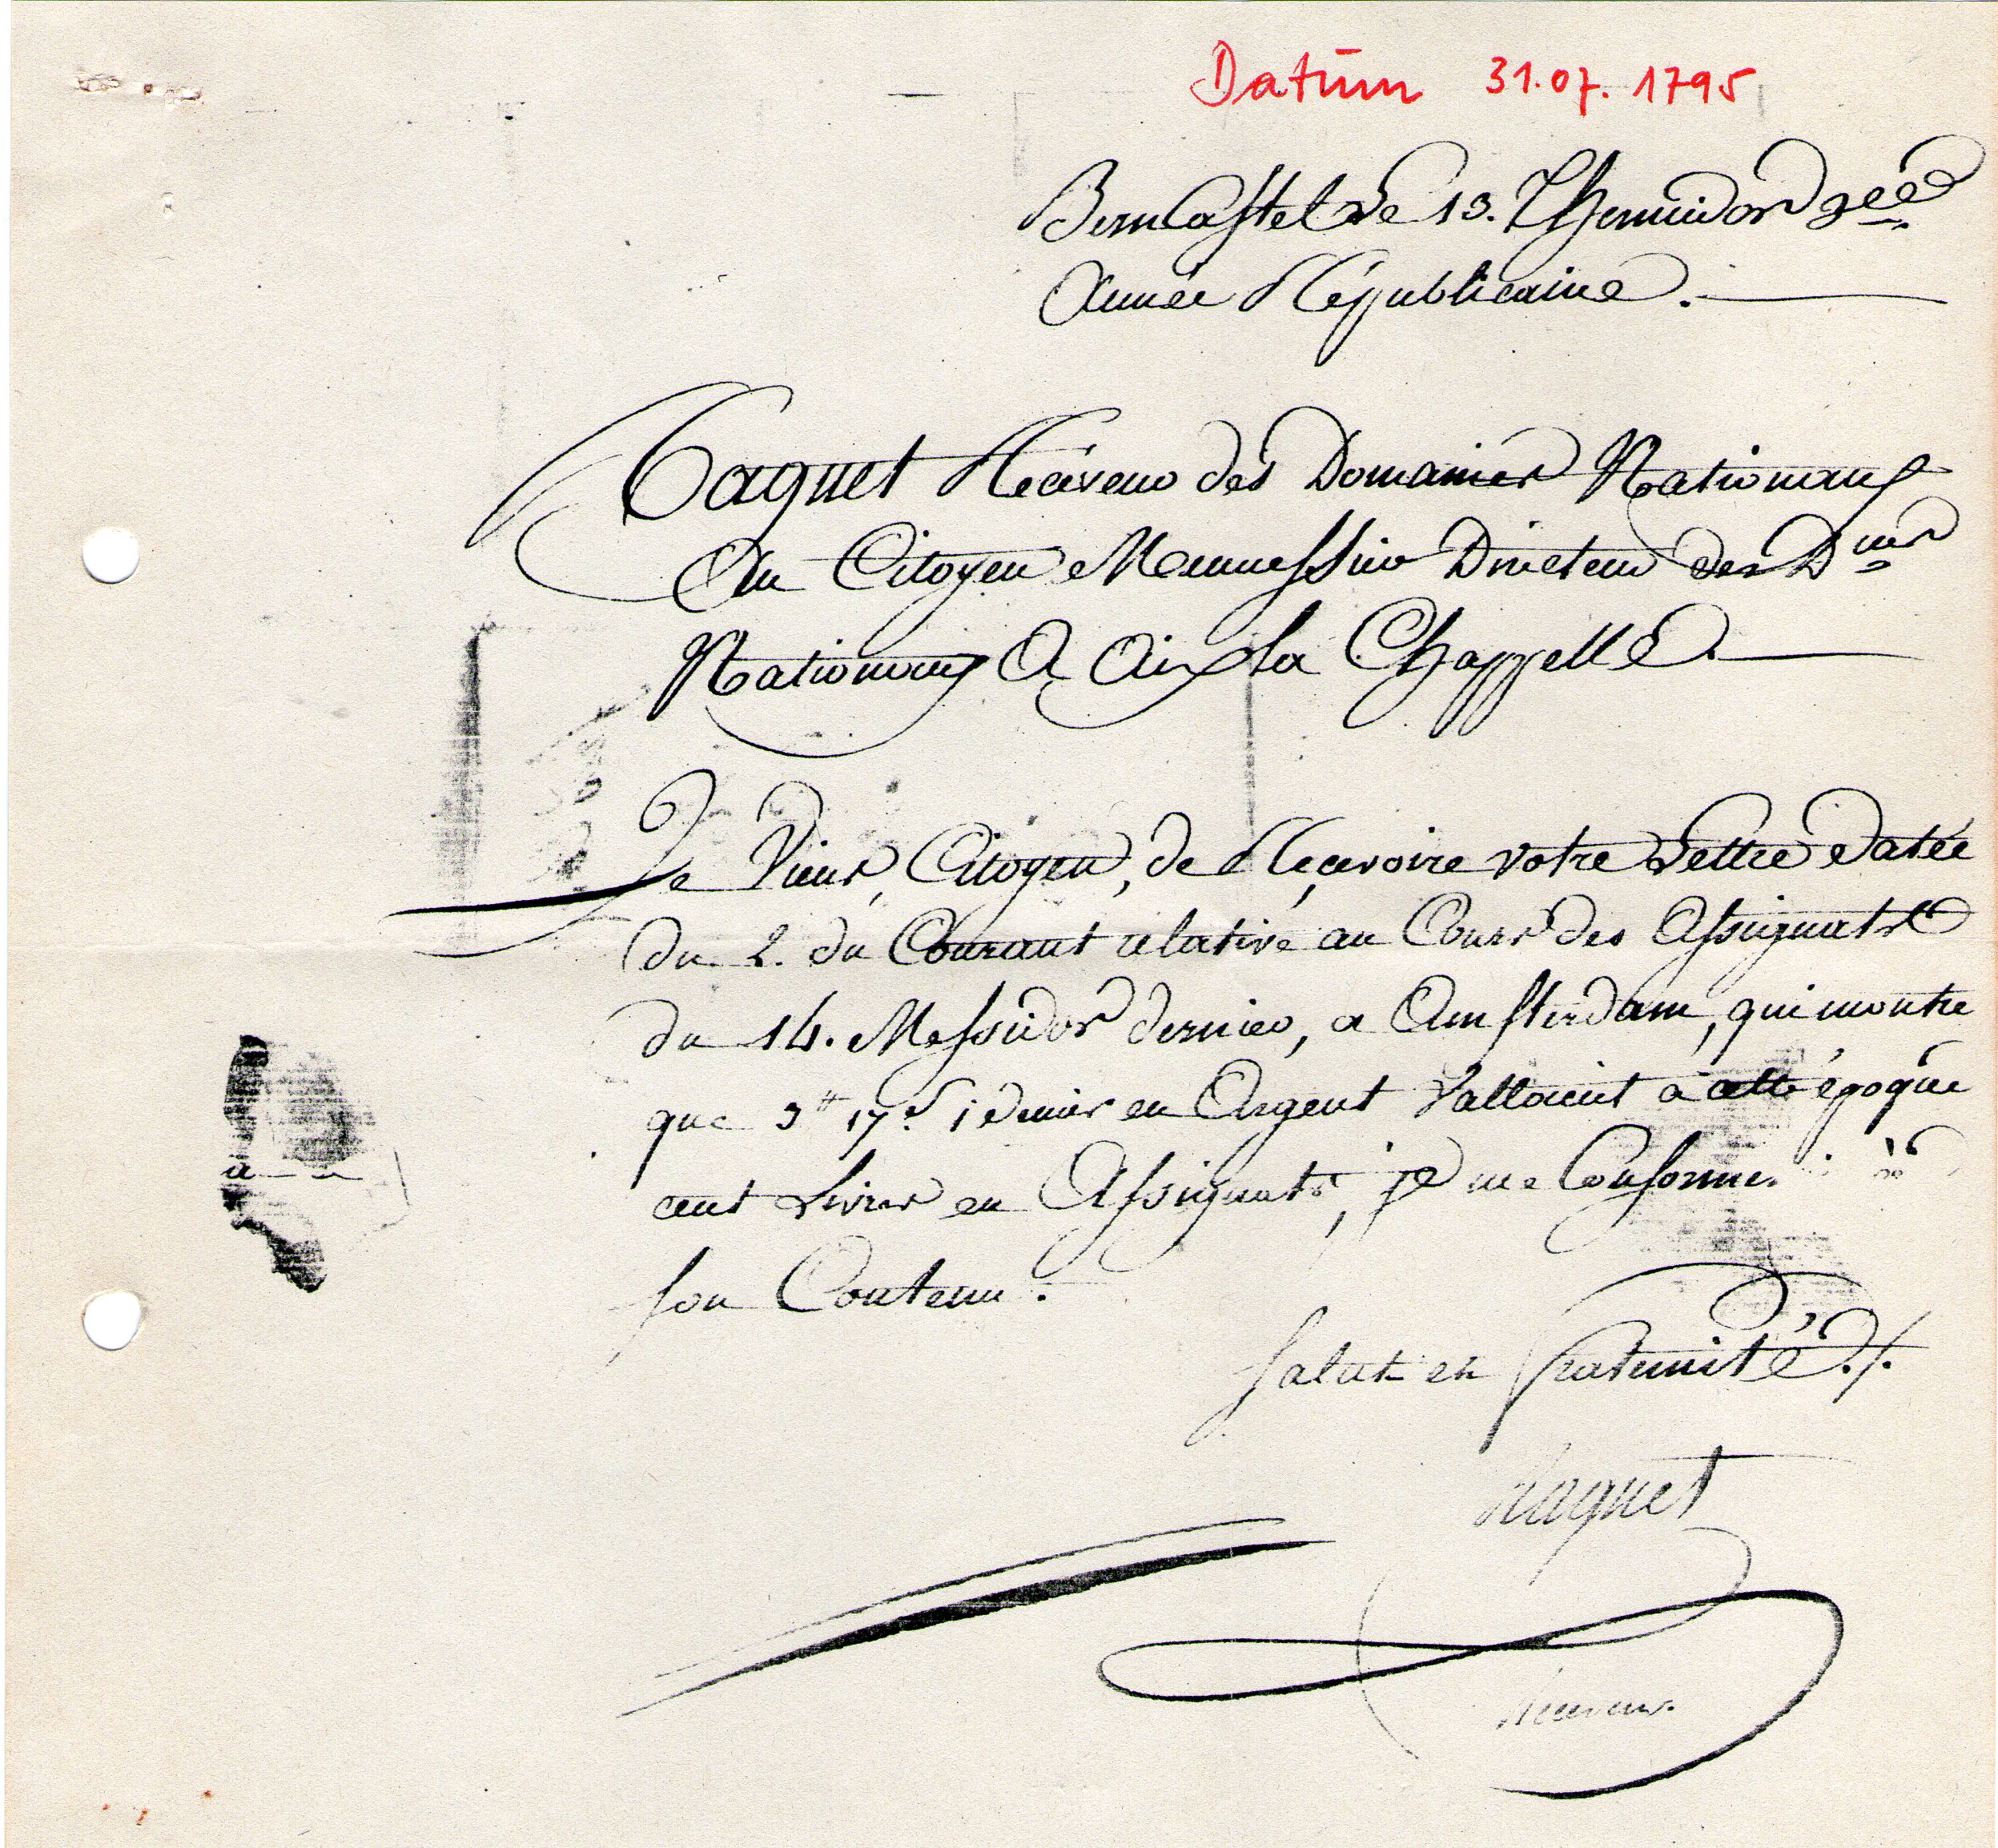 Datum 31.07.1795
BernCastel Le 13. Thermidor 3eé
Année Républicaine.
Taquet Réceveur des Domaines Nationaux
Au Citoyen Mennessier Directeur des Dnes
Nationaux A Aix la Chappelle.
Je Viens, Citoyen, de Reçevoire votre Lettre Datée
du 2. du Courant relative au Cours des Assignats
du 14. Messidor dernier, a Amsterdam, qui montre
que 3tt 17s 1 denier en Argent Vallaient à cette époque
cent Livres en Assignats, je me Conforme
son Contenu.
Salut en Fraternité ./.
Receveur.